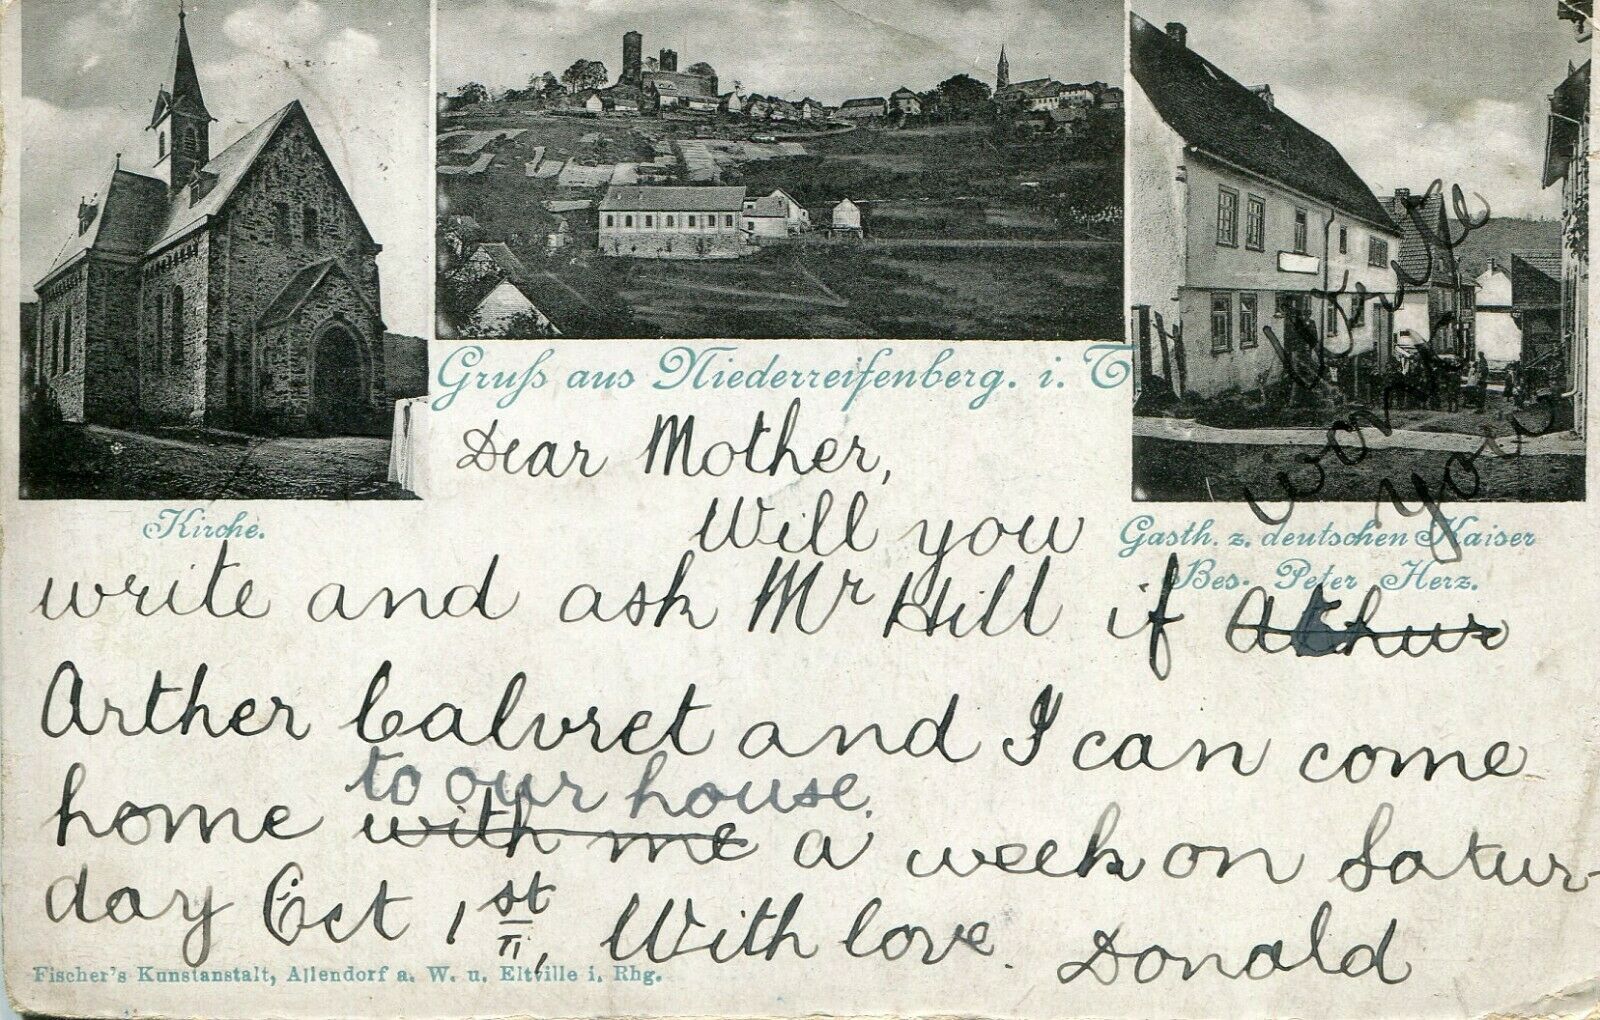 Gruß aus Niederreifenberg. i. T
Kirche.
Gasth. z. deutschen Kaiser
Bes. Peter Herz.
Dear Mother,
Will you
write and ask Mr Hill if Athur
Arther Calvret and I can come
to our house.
home with me a week on Satur-
day Oct 1st, With love. Donald
write
wont
you
Fischer's Kunstanstalt, Allendorf a. W. u. Eltville i. Rhg.